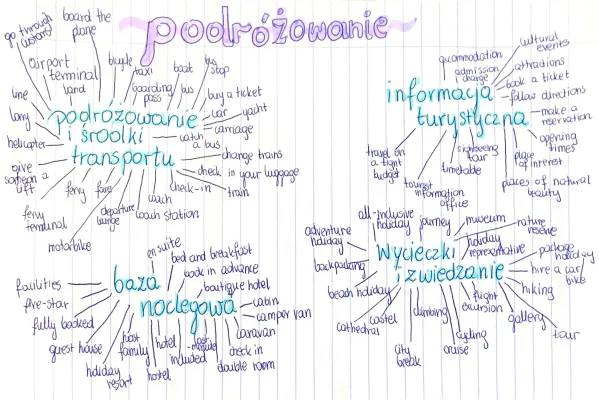 podróżowanie
podróżowanie
i środki
transportu
go through
customs
board the
plane
airport
terminal
land
bicycle
taxi
boarding
pass
boat
bus
bus
stop
buy a ticket
car
yacht
carriage
catch
a bus
change trains
check in your luggage
train
check-in
coach
coach station
departure
lounge
fare
ferry
ferry
terminal
motorbike
give
someone a
lift
helicopter
lorry
line
informacja
turystyczna
accommodation
admission
charge
cultural
events
attractions
book a ticket
follow directions
make a
reservation
opening
times
place
of interest
places of natural
beauty
sightseeing
tour
timetable
tourist
information
office
travel on
a tight
budget
baza
noclegowa
en suite
bed and breakfast
book in advance
boutique hotel
cabin
camper van
caravan
check in
double room
included
hotel
hostel
host
family
holiday
resort
guest house
fully booked
five-star
facilities
wycieczki
i zwiedzanie
all-inclusive
holiday
journey
museum
holiday
representative
nature
reserve
package
holiday
hire a car/
bike
hiking
tour
gallery
flight
excursion
cycling
cruise
climbing
city
break
castel
cathedral
beach holiday
backpacking
adventure
holiday